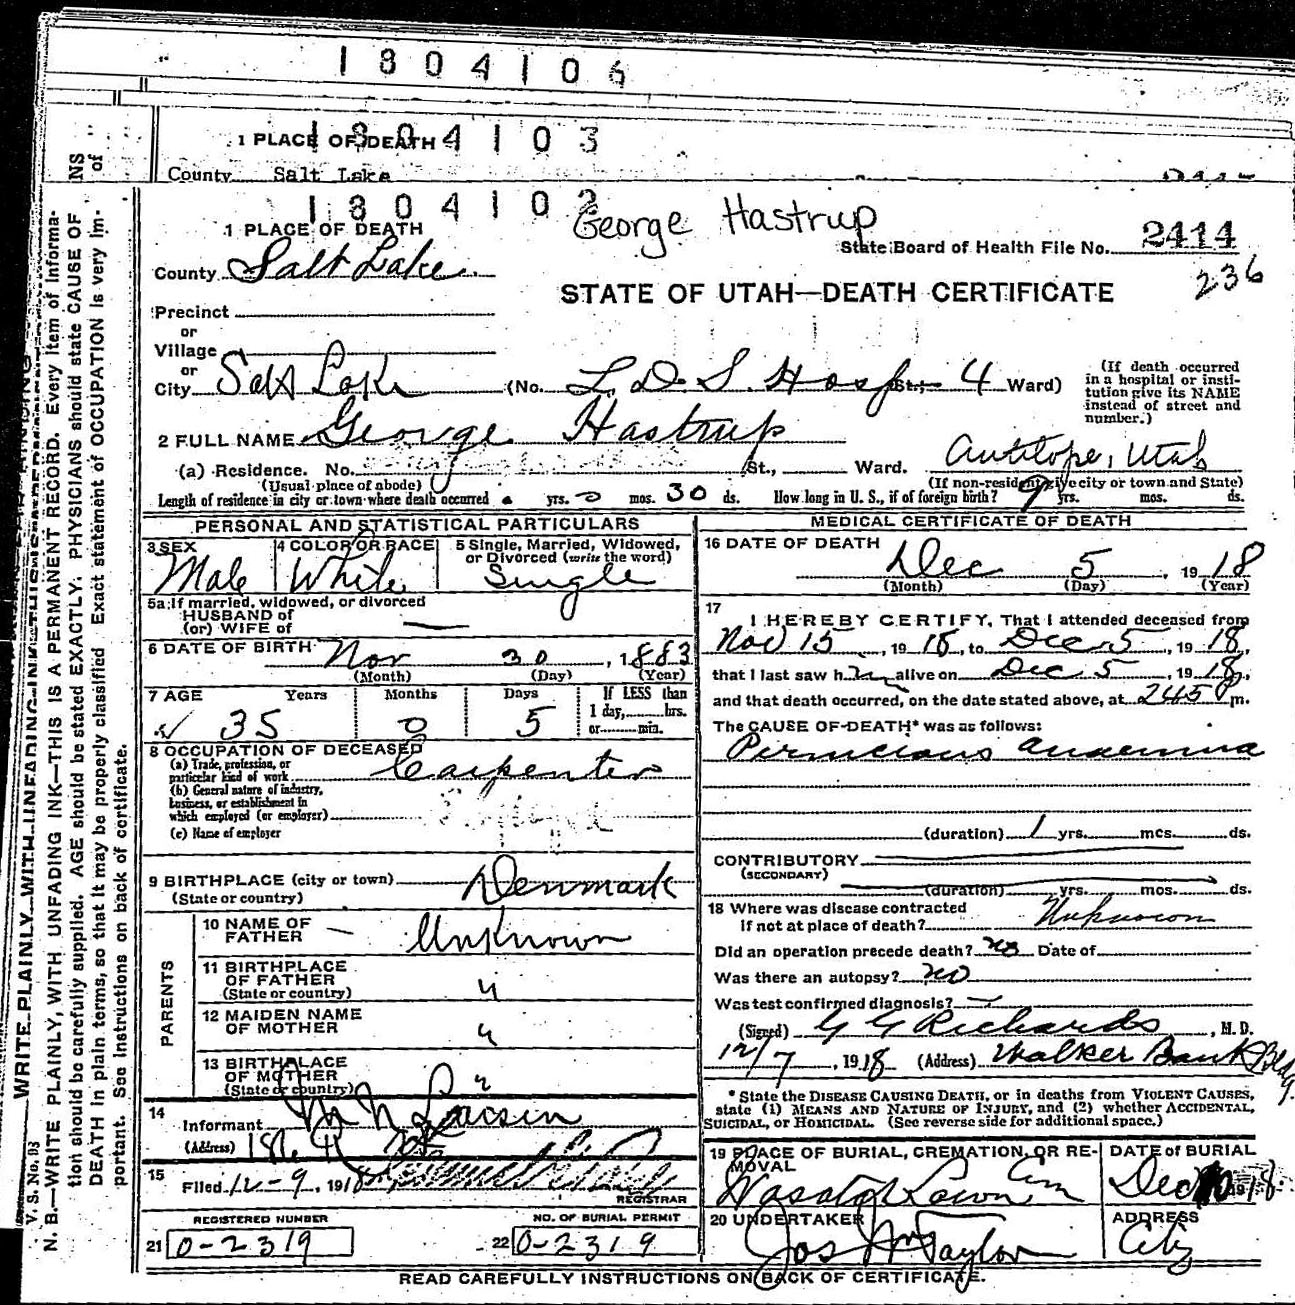 1804106
1804103
1 PLACE OF DEATH
County Salt Lake
1804102
George Hastrup
1 PLACE OF DEATH
State Board of Health File No. 2414
236
County Salt Lake
STATE OF UTAH—DEATH CERTIFICATE
Precinct
or
Village
or
City Salt Lake (No. L. D. S. Hosp St.; 4 Ward)
(If death occurred in a hospital or institution give its NAME instead of street and number.)
2 FULL NAME George Hastrup
(a) Residence. No. St., Ward. Antilope, Utah
(Usual place of abode) (If non-resident give city or town and State)
Length of residence in city or town where death occurred yrs. 0 mos. 30 ds. How long in U. S., if of foreign birth? 9 yrs. mos. ds.
PERSONAL AND STATISTICAL PARTICULARS
3 SEX Male
4 COLOR OR RACE White
5 Single, Married, Widowed, or Divorced (write the word) Single
5a If married, widowed, or divorced
HUSBAND of
(or) WIFE of —
6 DATE OF BIRTH Nov 30, 1883
(Month) (Day) (Year)
7 AGE Years Months Days If LESS than
35 0 5 1 day, hrs.
or min.
8 OCCUPATION OF DECEASED
(a) Trade, profession, or particular kind of work Carpenter
(b) General nature of industry, business, or establishment in which employed (or employer)
(c) Name of employer
9 BIRTHPLACE (city or town) Denmark
(State or country)
PARENTS
10 NAME OF FATHER — Unknown
11 BIRTHPLACE OF FATHER (State or country) "
12 MAIDEN NAME OF MOTHER "
13 BIRTHPLACE OF MOTHER (State or country) "
14
Informant M N Larsen
(Address)
15
Filed 12-9, 1918
REGISTRAR
REGISTERED NUMBER NO. OF BURIAL PERMIT
21 0-2319 22 0-2319
MEDICAL CERTIFICATE OF DEATH
16 DATE OF DEATH
Dec 5, 1918
(Month) (Day) (Year)
17
I HEREBY CERTIFY, That I attended deceased from
Nov 15, 1918, to Dec 5, 1918,
that I last saw him alive on Dec 5, 1918,
and that death occurred, on the date stated above, at 245 P m.
The CAUSE OF DEATH* was as follows:
Pernicious anaemia
(duration) 1 yrs. mos. ds.
CONTRIBUTORY
(SECONDARY)
(duration) yrs. mos. ds.
18 Where was disease contracted
if not at place of death? Unknown
Did an operation precede death? no Date of
Was there an autopsy? no
Was test confirmed diagnosis? —
(Signed) G G Richards, M. D.
12/7, 1918 (Address) Walker Bank Bldg.
* State the DISEASE CAUSING DEATH, or in deaths from VIOLENT CAUSES, state (1) MEANS AND NATURE OF INJURY, and (2) whether ACCIDENTAL, SUICIDAL, or HOMICIDAL. (See reverse side for additional space.)
19 PLACE OF BURIAL, CREMATION, OR REMOVAL
Wasatch Lawn Cem
DATE of BURIAL
Dec 10 1918
20 UNDERTAKER
Jos Wm Taylor
ADDRESS
City
READ CAREFULLY INSTRUCTIONS ON BACK OF CERTIFICATE.
V. S. No. B3
N. B.—WRITE PLAINLY, WITH UNFADING INK—THIS IS A PERMANENT RECORD. Every item of information should be carefully supplied. AGE should be stated EXACTLY. PHYSICIANS should state CAUSE OF DEATH in plain terms, so that it may be properly classified. Exact statement of OCCUPATION is very important. See instructions on back of certificate.